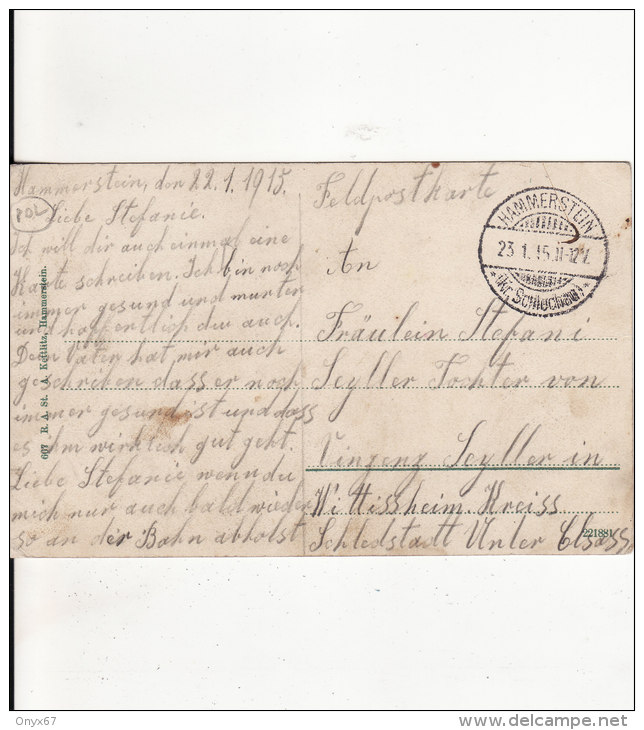 Hammerstein, den 22.1.1915.
Liebe Stefanie.
Ich will dir auch einmal eine
Karte schreiben. Ich bin noch
immer gesund und munter
und hoffentlich du auch.
Dein Vater hat mir auch
geschrieben dass er noch
immer gesund ist und dass
es ihm wirklich gut geht.
Liebe Stefanie, wenn du
mich nur auch bald wieder
so an der Bahn abholst
POL
607 R. A. St. A. Kettlitz, Hammerstein.
Feldpostkarte
HAMMERSTEIN
23.1.15.11-12V.
(Kr. Schlochau)
An
Fräulein Stefani
Seyller Tochter von
Vinzenz Seyller in
Wittissheim. Kreiss
Schledstadt Unter Elsass
221881
Onyx67
www.delcampe.net